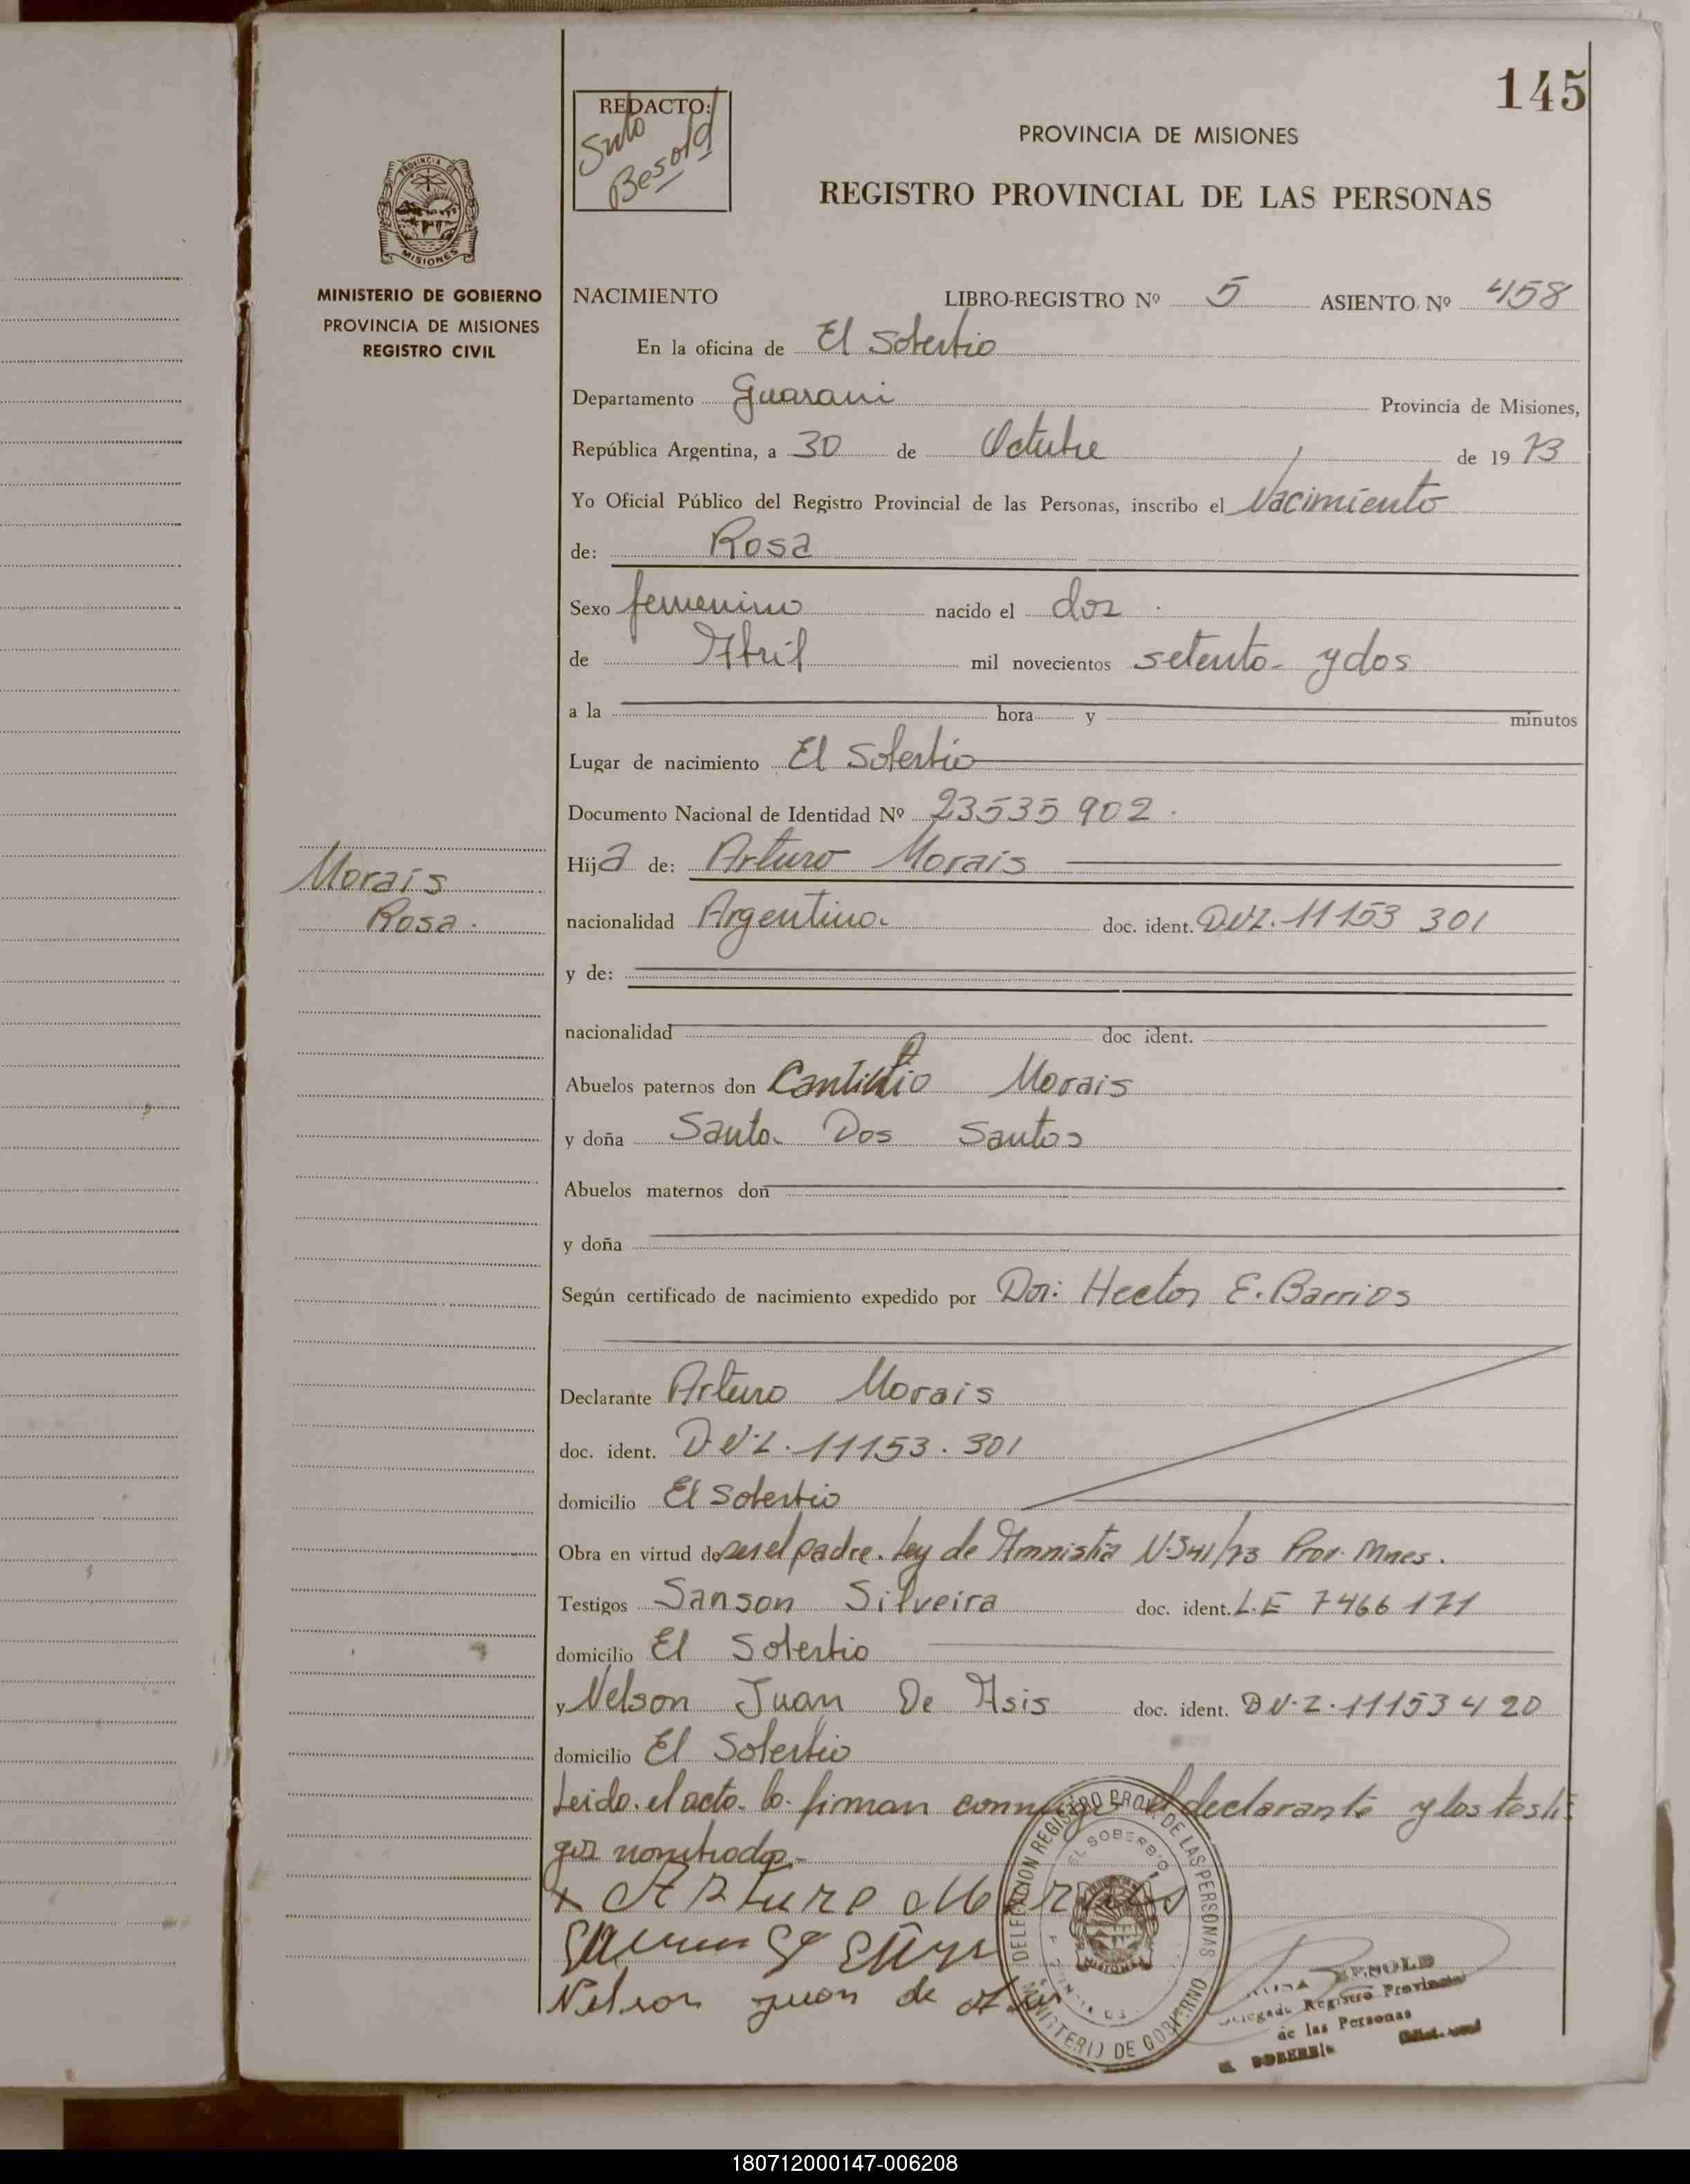 145
REDACTO:
Besold
PROVINCIA DE MISIONES
REGISTRO PROVINCIAL DE LAS PERSONAS
PROVINCIA DE
MISIONES
MINISTERIO DE GOBIERNO
PROVINCIA DE MISIONES
REGISTRO CIVIL
NACIMIENTO LIBRO-REGISTRO Nº 5 ASIENTO Nº 458
En la oficina de El Soberbio
Departamento Guarani Provincia de Misiones,
República Argentina, a 30 de Octubre de 19 73
Yo Oficial Público del Registro Provincial de las Personas, inscribo el Nacimiento
de: Rosa
Sexo femenino nacido el dos
de Abril mil novecientos setenta y dos
a la hora y minutos
Lugar de nacimiento El Soberbio
Documento Nacional de Identidad Nº 23535902.
Morais
Rosa.
Hija de: Arturo Morais
nacionalidad Argentino. doc. ident. D.N.I. 11153 301
y de:
nacionalidad doc ident.
Abuelos paternos don Morais
y doña Santa Dos Santos
Abuelos maternos don
y doña
Según certificado de nacimiento expedido por Dor: Hector E. Barrios
Declarante Arturo Morais
doc. ident. D.N.I. 11153.301
domicilio El Soberbio
Obra en virtud de ser el padre. Ley de Amnistia N.341/73 Prov. Mnes.
Testigos Sanson Silveira doc. ident. L.E 7466171
domicilio El Soberbio
y Nelson Juan De Asis doc. ident. D N.I. 11153420
domicilio El Soberbio
Leida el acta la firman conmigo el declarante y los testi
gos nombrados-
x Arturo Morais
Nelson juan de Asis
DELEGACION REGISTRO PROV. DE LAS PERSONAS
EL SOBERBIO
MINISTERIO DE GOBIERNO
BESOLD
Delegada Registro Provincial
de las Personas
EL SOBERBIO
180712000147-006208